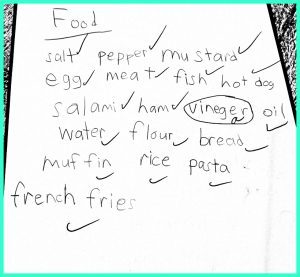 Food
salt pepper mustard
egg meat fish hot dog
salami ham vineger oil
water flour bread
muffin rice pasta
french fries